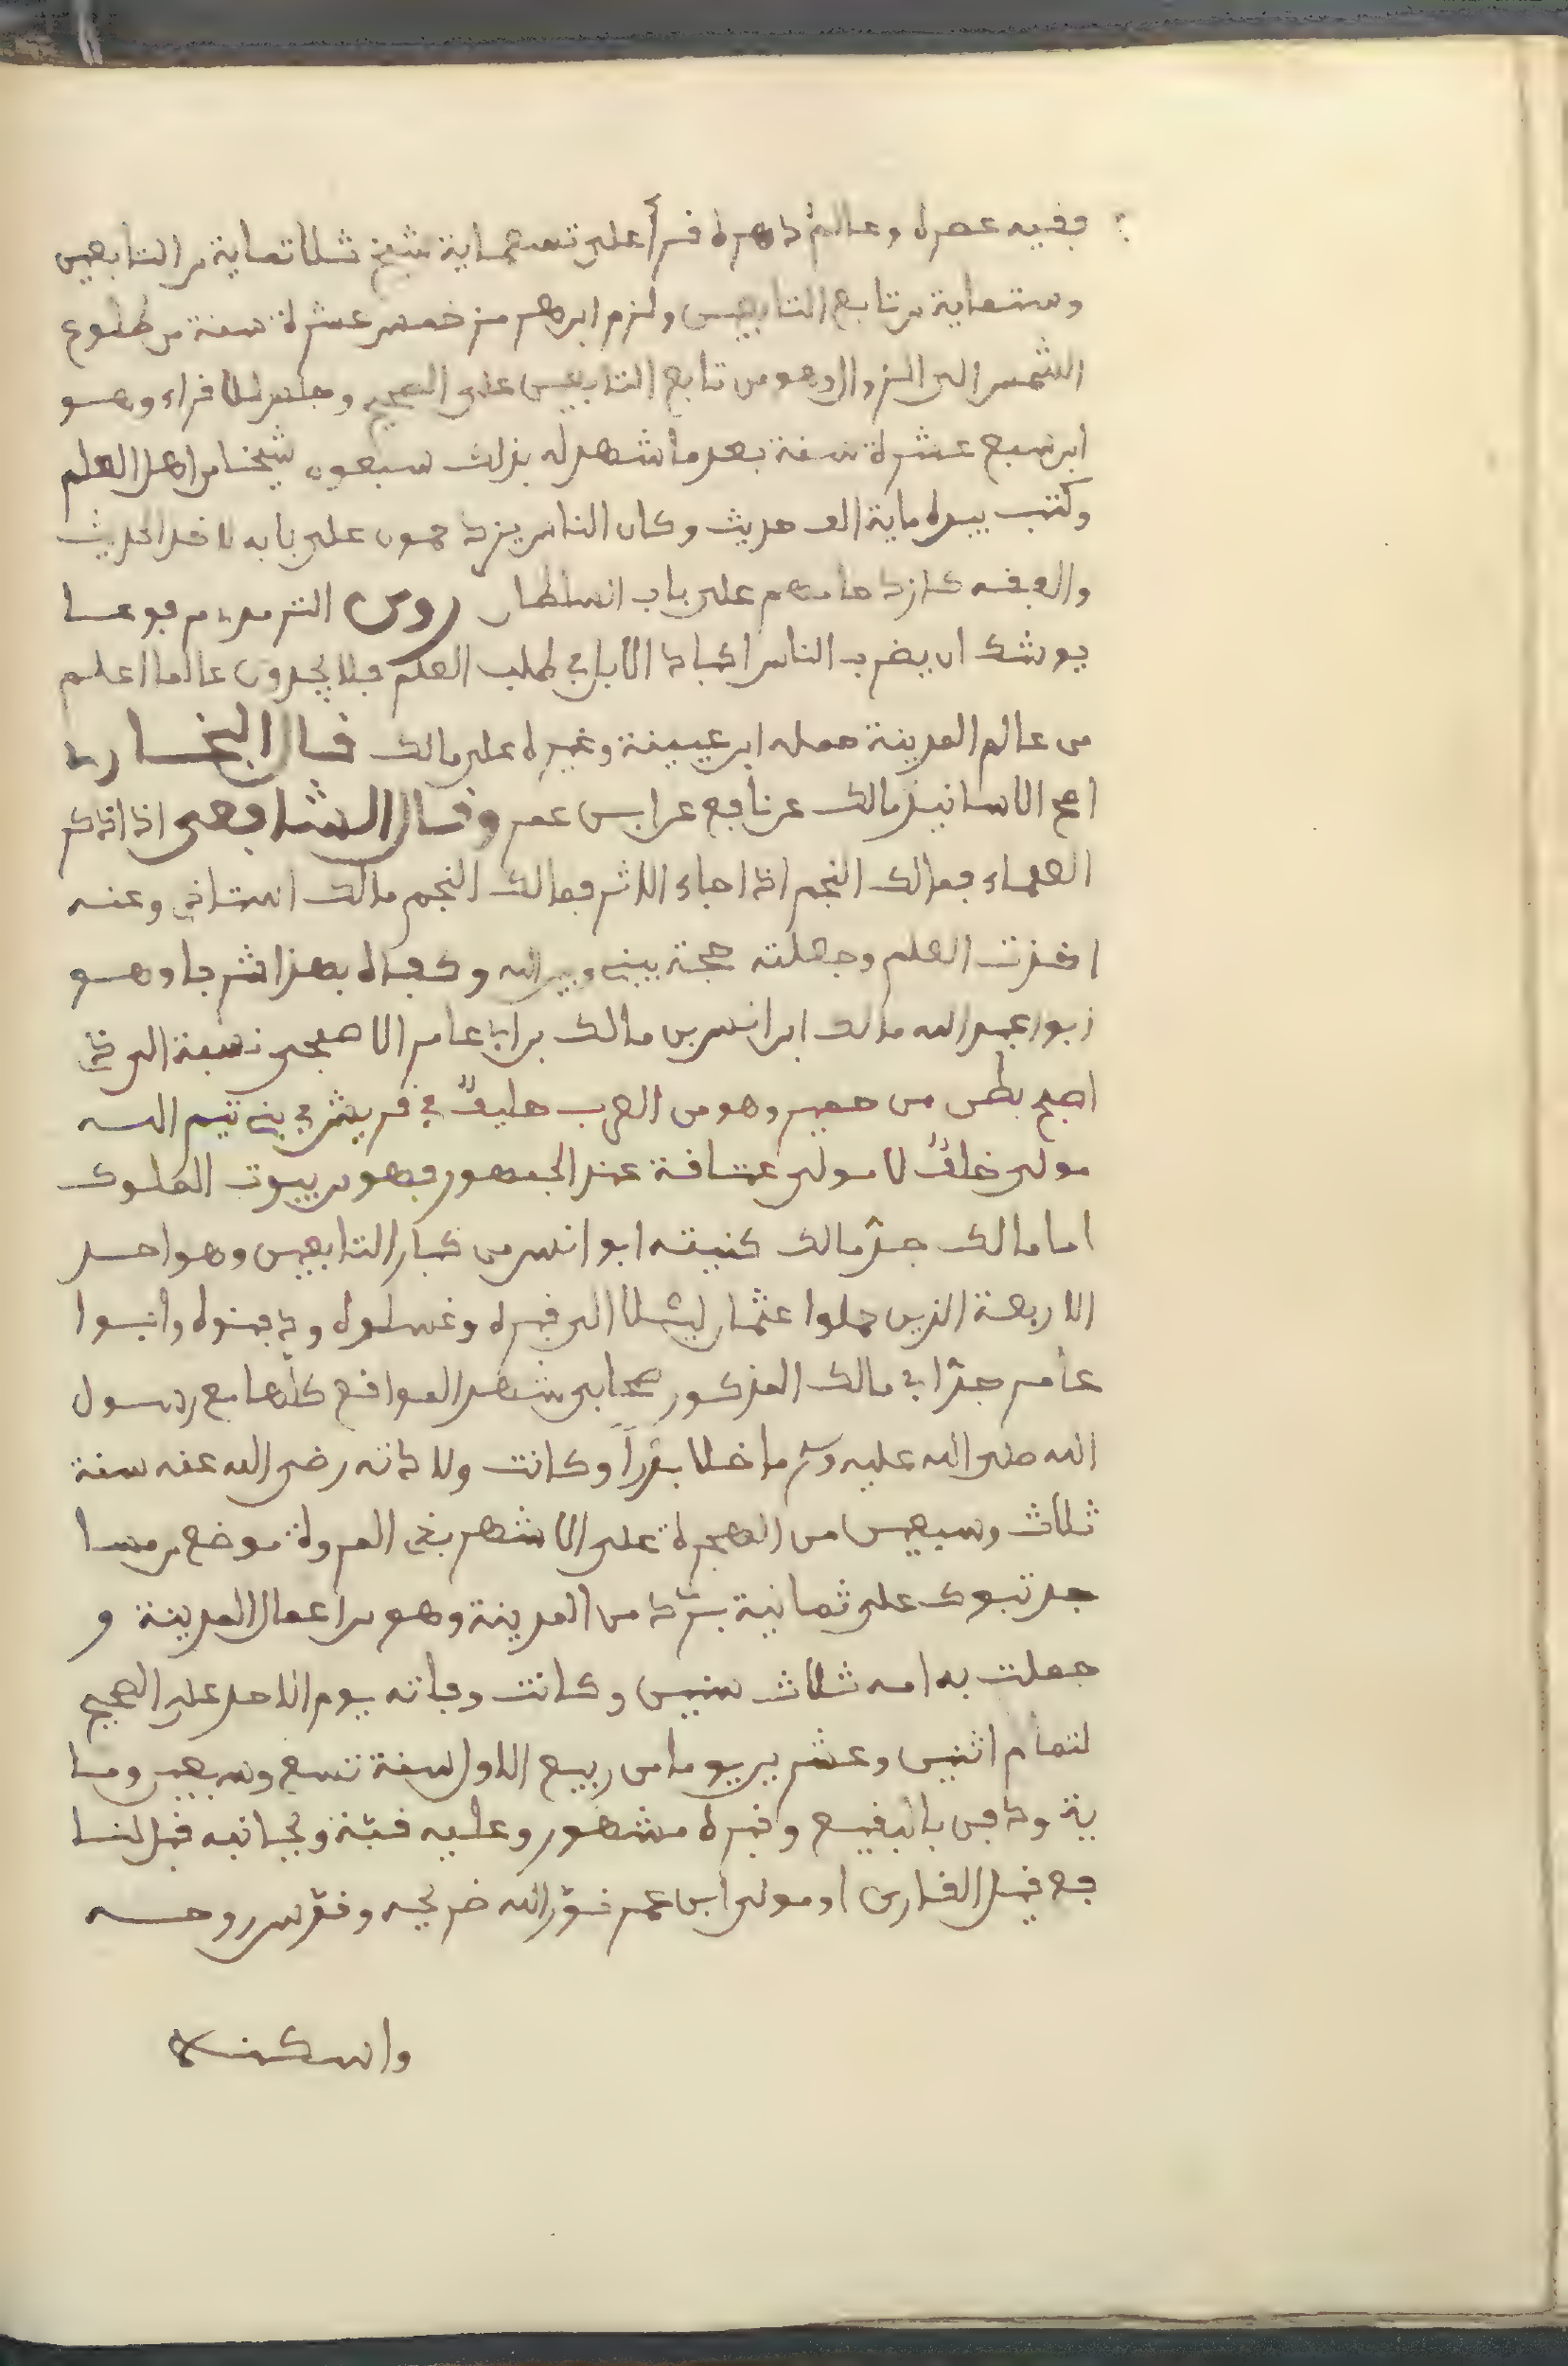 فقيه عصره وعالمُ دهره قرأ على تسعماية شيخ ثلاثماية من التابعين
وستماية من تابع التابعين ولزم ابن هرمز خمس عشرة سنة من طلوع
الشمس الى الزوال وهو من تابع التابعين على الصحيح وجلس للاقراء وهو
ابن سبع عشرة سنة بعد ما شهد له بذلك سبعون شيخا من اهل العلم
وكتب بيده ماية الف حديث وكان الناس يزدحمون على بابه لاخذ الحديث
والفقه كازدحامهم على باب السلطان روى الترمذي مرفوعا
يوشك ان يضرب الناس اكباد الابل في طلب العلم فلا يجدون عالما اعلم
من عالم المدينة حمله ابن عيينة وغيره على مالك قال البخاري
اصح الاسانيد مالك عن نافع عن ابن عمر وقال الشافعي اذا ذكر
العلماء فمالك النجم اذا جاء الاثر فمالك النجم مالك استاذي وعنه
اخذت العلم وجعلته حجة بيني وبين الله وكفاه بهذا شرفا وهو
ابو عبد الله مالك ابن انس بن مالك بن ابي عامر الاصبحي نسبة الى ذي
اصبح بطن من حمير وهو من العرب حليفٌ في قريش في بني تيم الله
مولى حلفٌ لا مولى عتاقة عند الجمهور فهو من بيوت الملوك
اما مالك جدّ مالك كنيته ابو انس من كبار التابعين وهو احد
الاربعة الذين حملوا عثمان ليلا الى قبره وغسلوه ودفنوه وابوا
عامر جدّ ابي مالك المذكور صحابي شهد المواقع كلّها مع رسول
الله صلى الله عليه وسلم ما خلا بدراً وكانت ولادته رضي الله عنه سنة
ثلاث وتسعين من الهجرة على الاشهر بذي المروة موضع من مسا
جد تبوك على ثمانية بُرُد من المدينة وهو من اعمال المدينة و
حملت به امه ثلاث سنين وكانت وفاته يوم الاحد على الصحيح
لتمام اثنين وعشرين يوما من ربيع الاول سنة تسع وسبعين وما
ية ودفن بالبقيع وقبره مشهور وعليه قبّة وبجانبه قبر لنا
فع قيل القارئ او مولى ابن عمر نوّر الله ضريحه وقدّس روحه
واسكنه